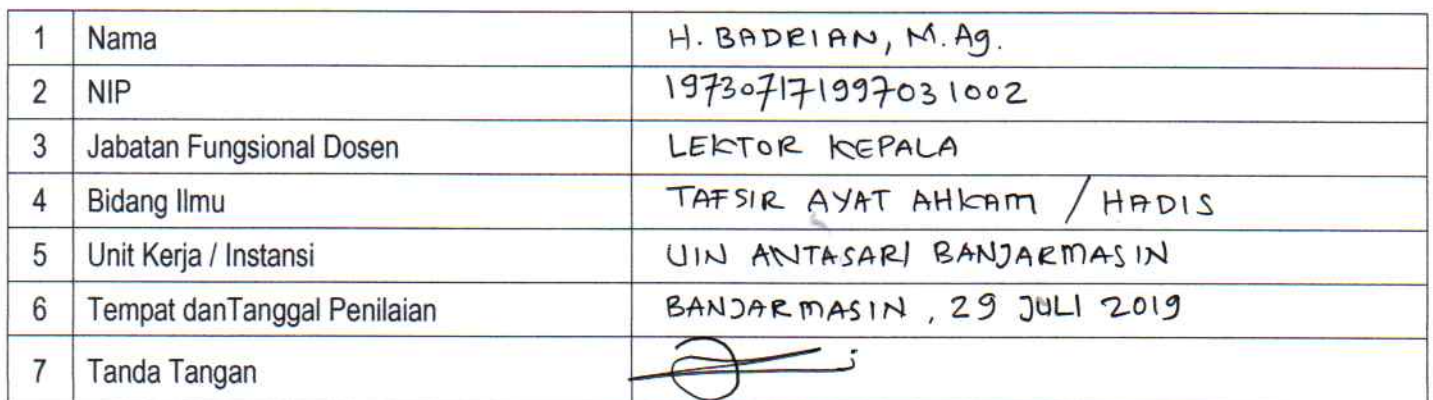 1 Nama H. BADRIAN, M.Ag.
2 NIP 197307171997031002
3 Jabatan Fungsional Dosen LEKTOR KEPALA
4 Bidang Ilmu TAFSIR AYAT AHKAM / HADIS
5 Unit Kerja / Instansi UIN ANTASARI BANJARMASIN
6 Tempat danTanggal Penilaian BANJARMASIN, 29 JULI 2019
7 Tanda Tangan